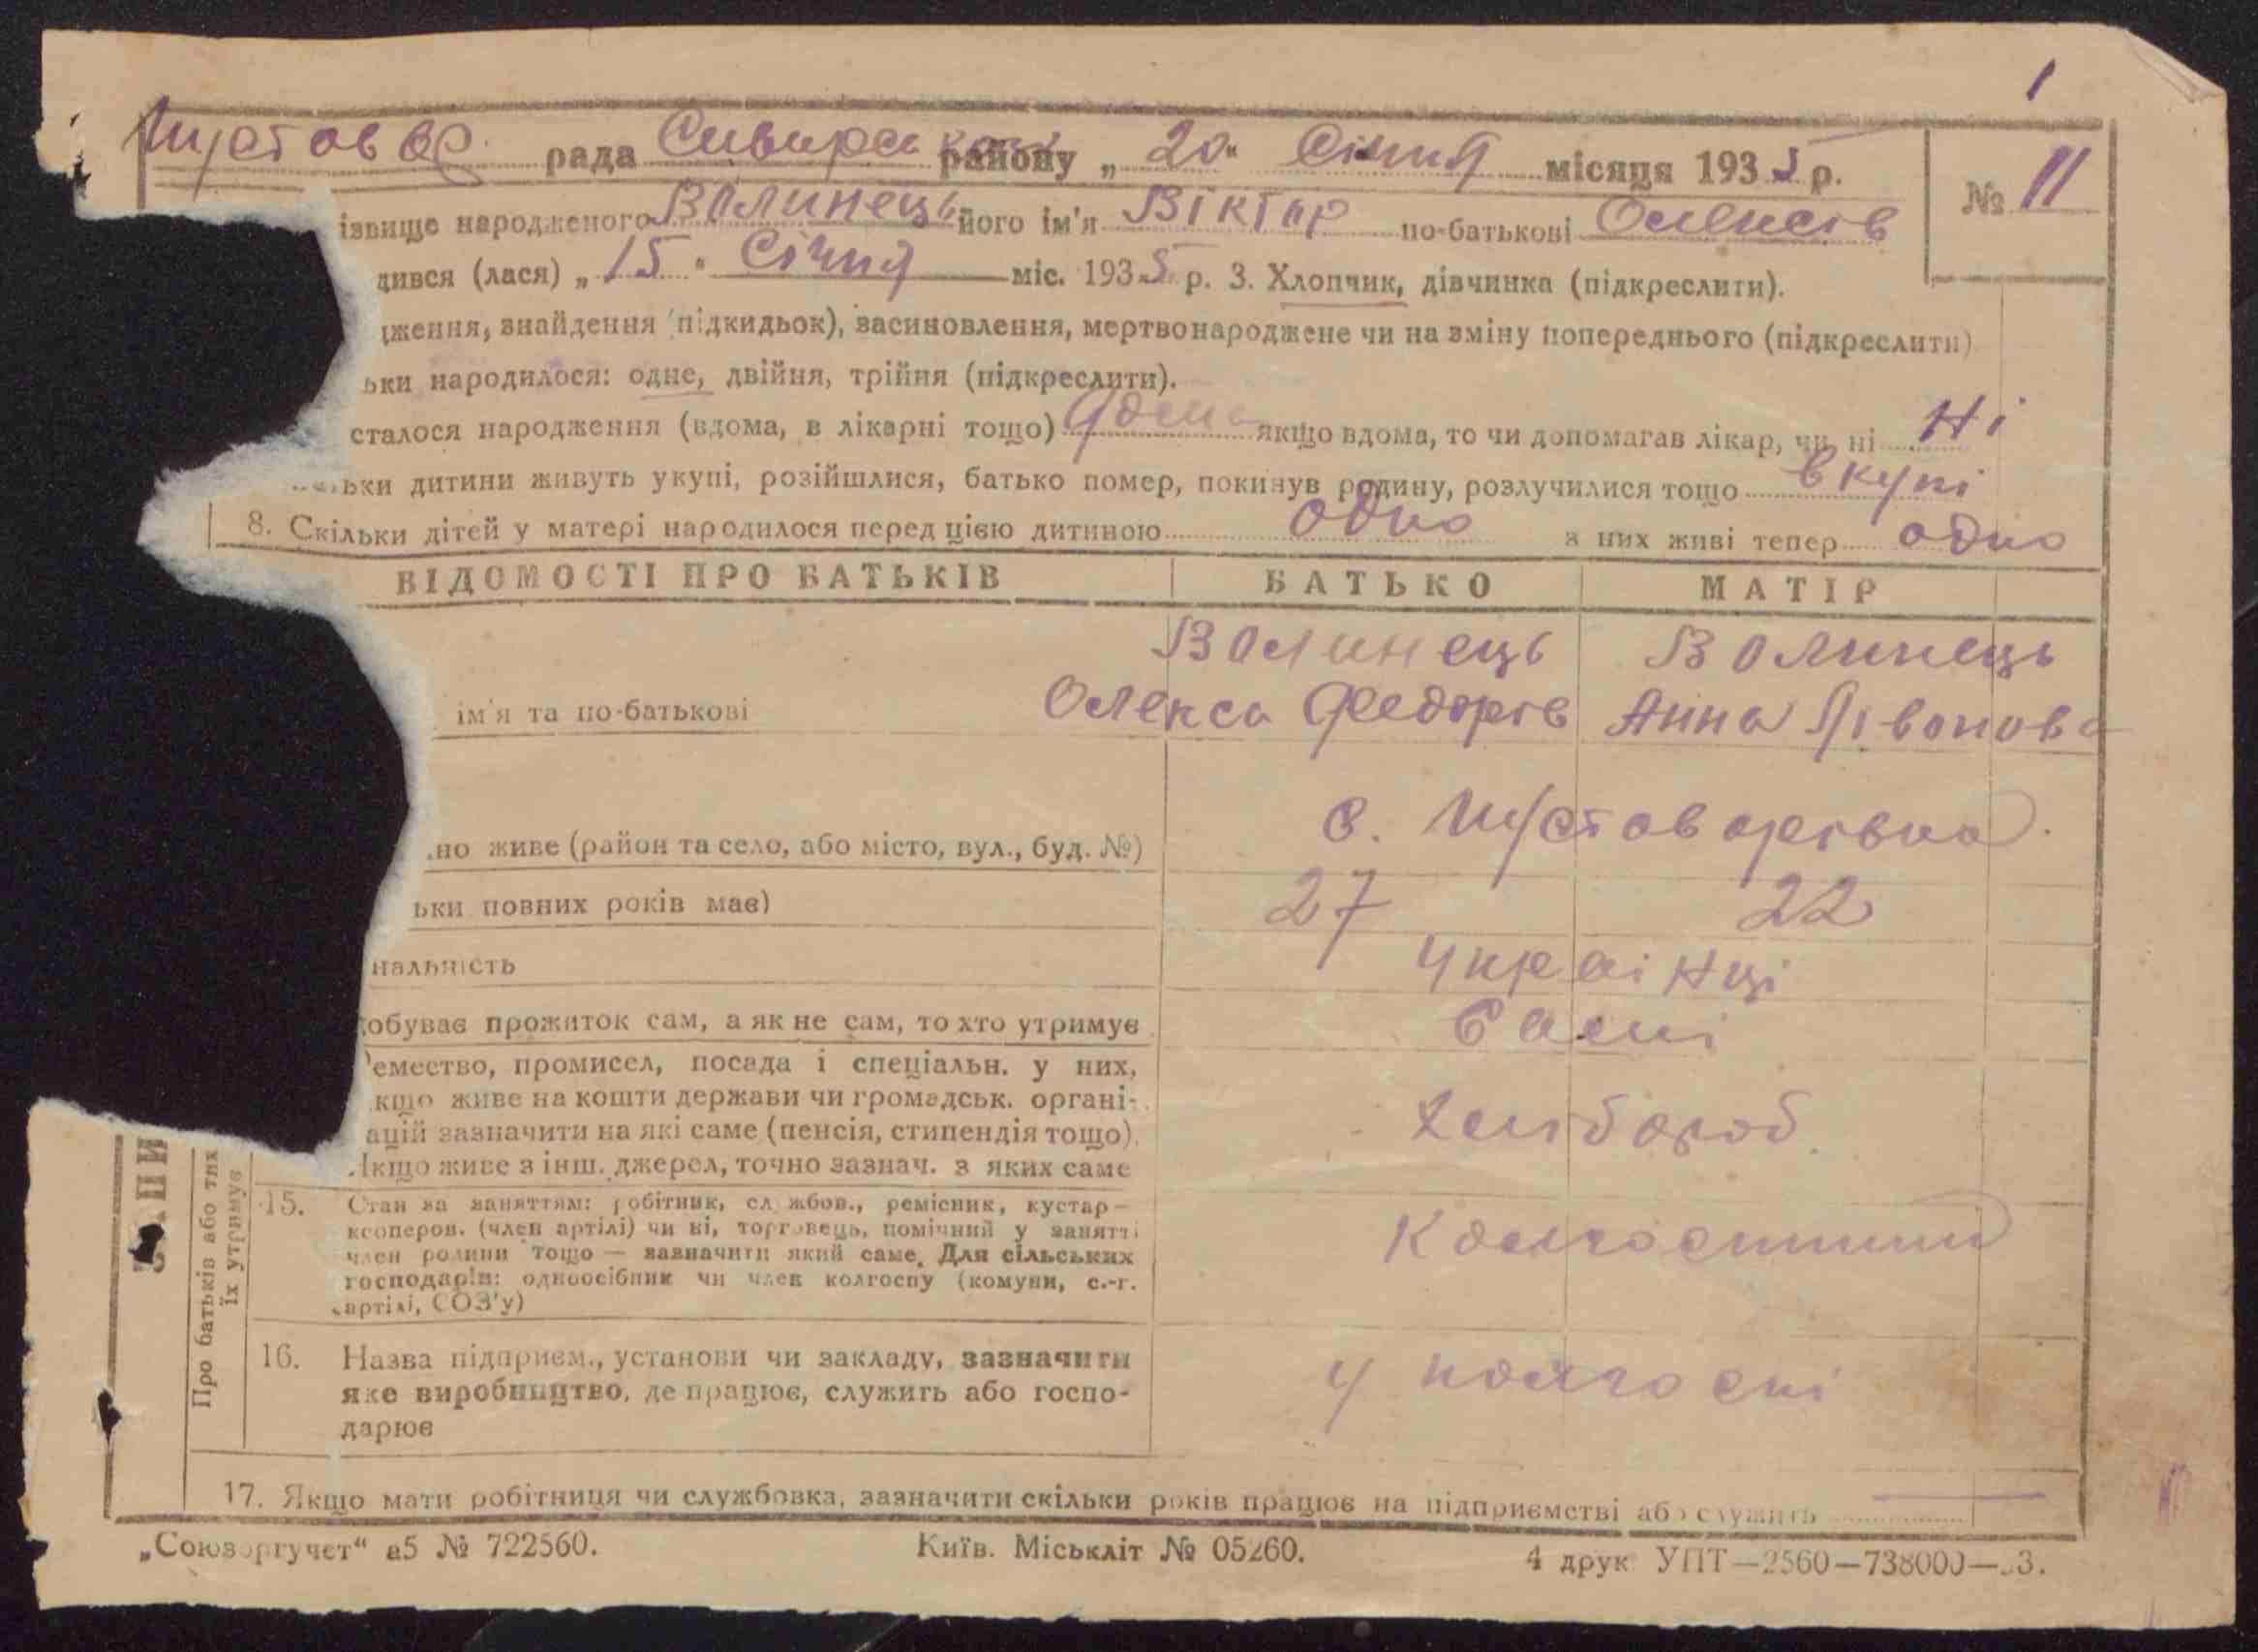 1
рада району „ 20 " Січня місяця 1935 р. № 11
ізвище народженого Волинець його ім'я Віктор по-батькові Олексів
дився (лася) „ 15 " Січня міс. 1935 р. 3. Хлопчик, дівчинка (підкреслити).
дження, знайдення (підкидьок), засиновлення, мертвонароджене чи на зміну попереднього (підкреслити)
ьки народилося: одне, двійня, трійня (підкреслити).
сталося народження (вдома, в лікарні тощо) якщо вдома, то чи допомагав лікар, чи ні Ні
ьки дитини живуть укупі, розійшлися, батько помер, покинув родину, розлучилися тощо вкупі
8. Скільки дітей у матері народилося перед цією дитиною одно з них живі тепер одно
ВІДОМОСТІ ПРО БАТЬКІВ БАТЬКО МАТІР
Волинець Волинець
ім'я та по-батькові Олекса Федорів Анна
но живе (район та село, або місто, вул., буд. №) с.
ьки повних років має) 27 22
нальність Українці
обуває прожиток сам, а як не сам, то хто утримує Самі
емество, промисел, посада і спеціальн. у них,
кщо живе на кошти держави чи громадськ. органі-
ацій зазначити на які саме (пенсія, стипендія тощо).
Якщо живе з інш. джерел, точно зазнач. з яких саме
Хлібороб
Про батьків або тих
їх утримує
15. Стан за заняттям: робітник, службов., ремісник, кустар—
кооперов. (член артілі) чи ні, торговець, помічний у занятті
член родини тощо — зазначити який саме. Для сільських
господарів: одноосібник чи член колгоспу (комуни, с.-г.
артілі, СОЗ'у)
16. Назва підприєм., установи чи закладу, зазначити
яке виробництво, де працює, служить або госпо-
дарює
у колгоспі
17. Якщо мати робітниця чи службовка, зазначити скільки років працює на підприємстві або служить
„Союзоргучет“ а5 № 722560. Київ. Міськліт № 05260. 4 друк УПТ—2560—738000—33.